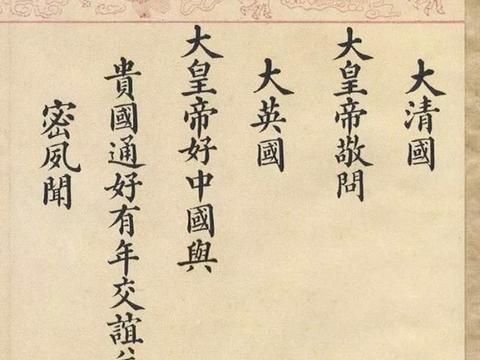 大清國
大皇帝敬問
大英國
大皇帝好中國與
貴國通好有年交誼
密夙聞